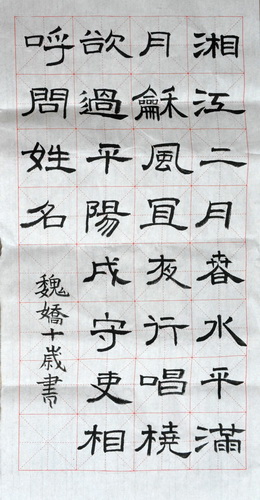 湘江二月春水平滿
月龢風宜夜行唱橈
欲過平陽戍守吏相
呼問姓名
魏嬌十歲書